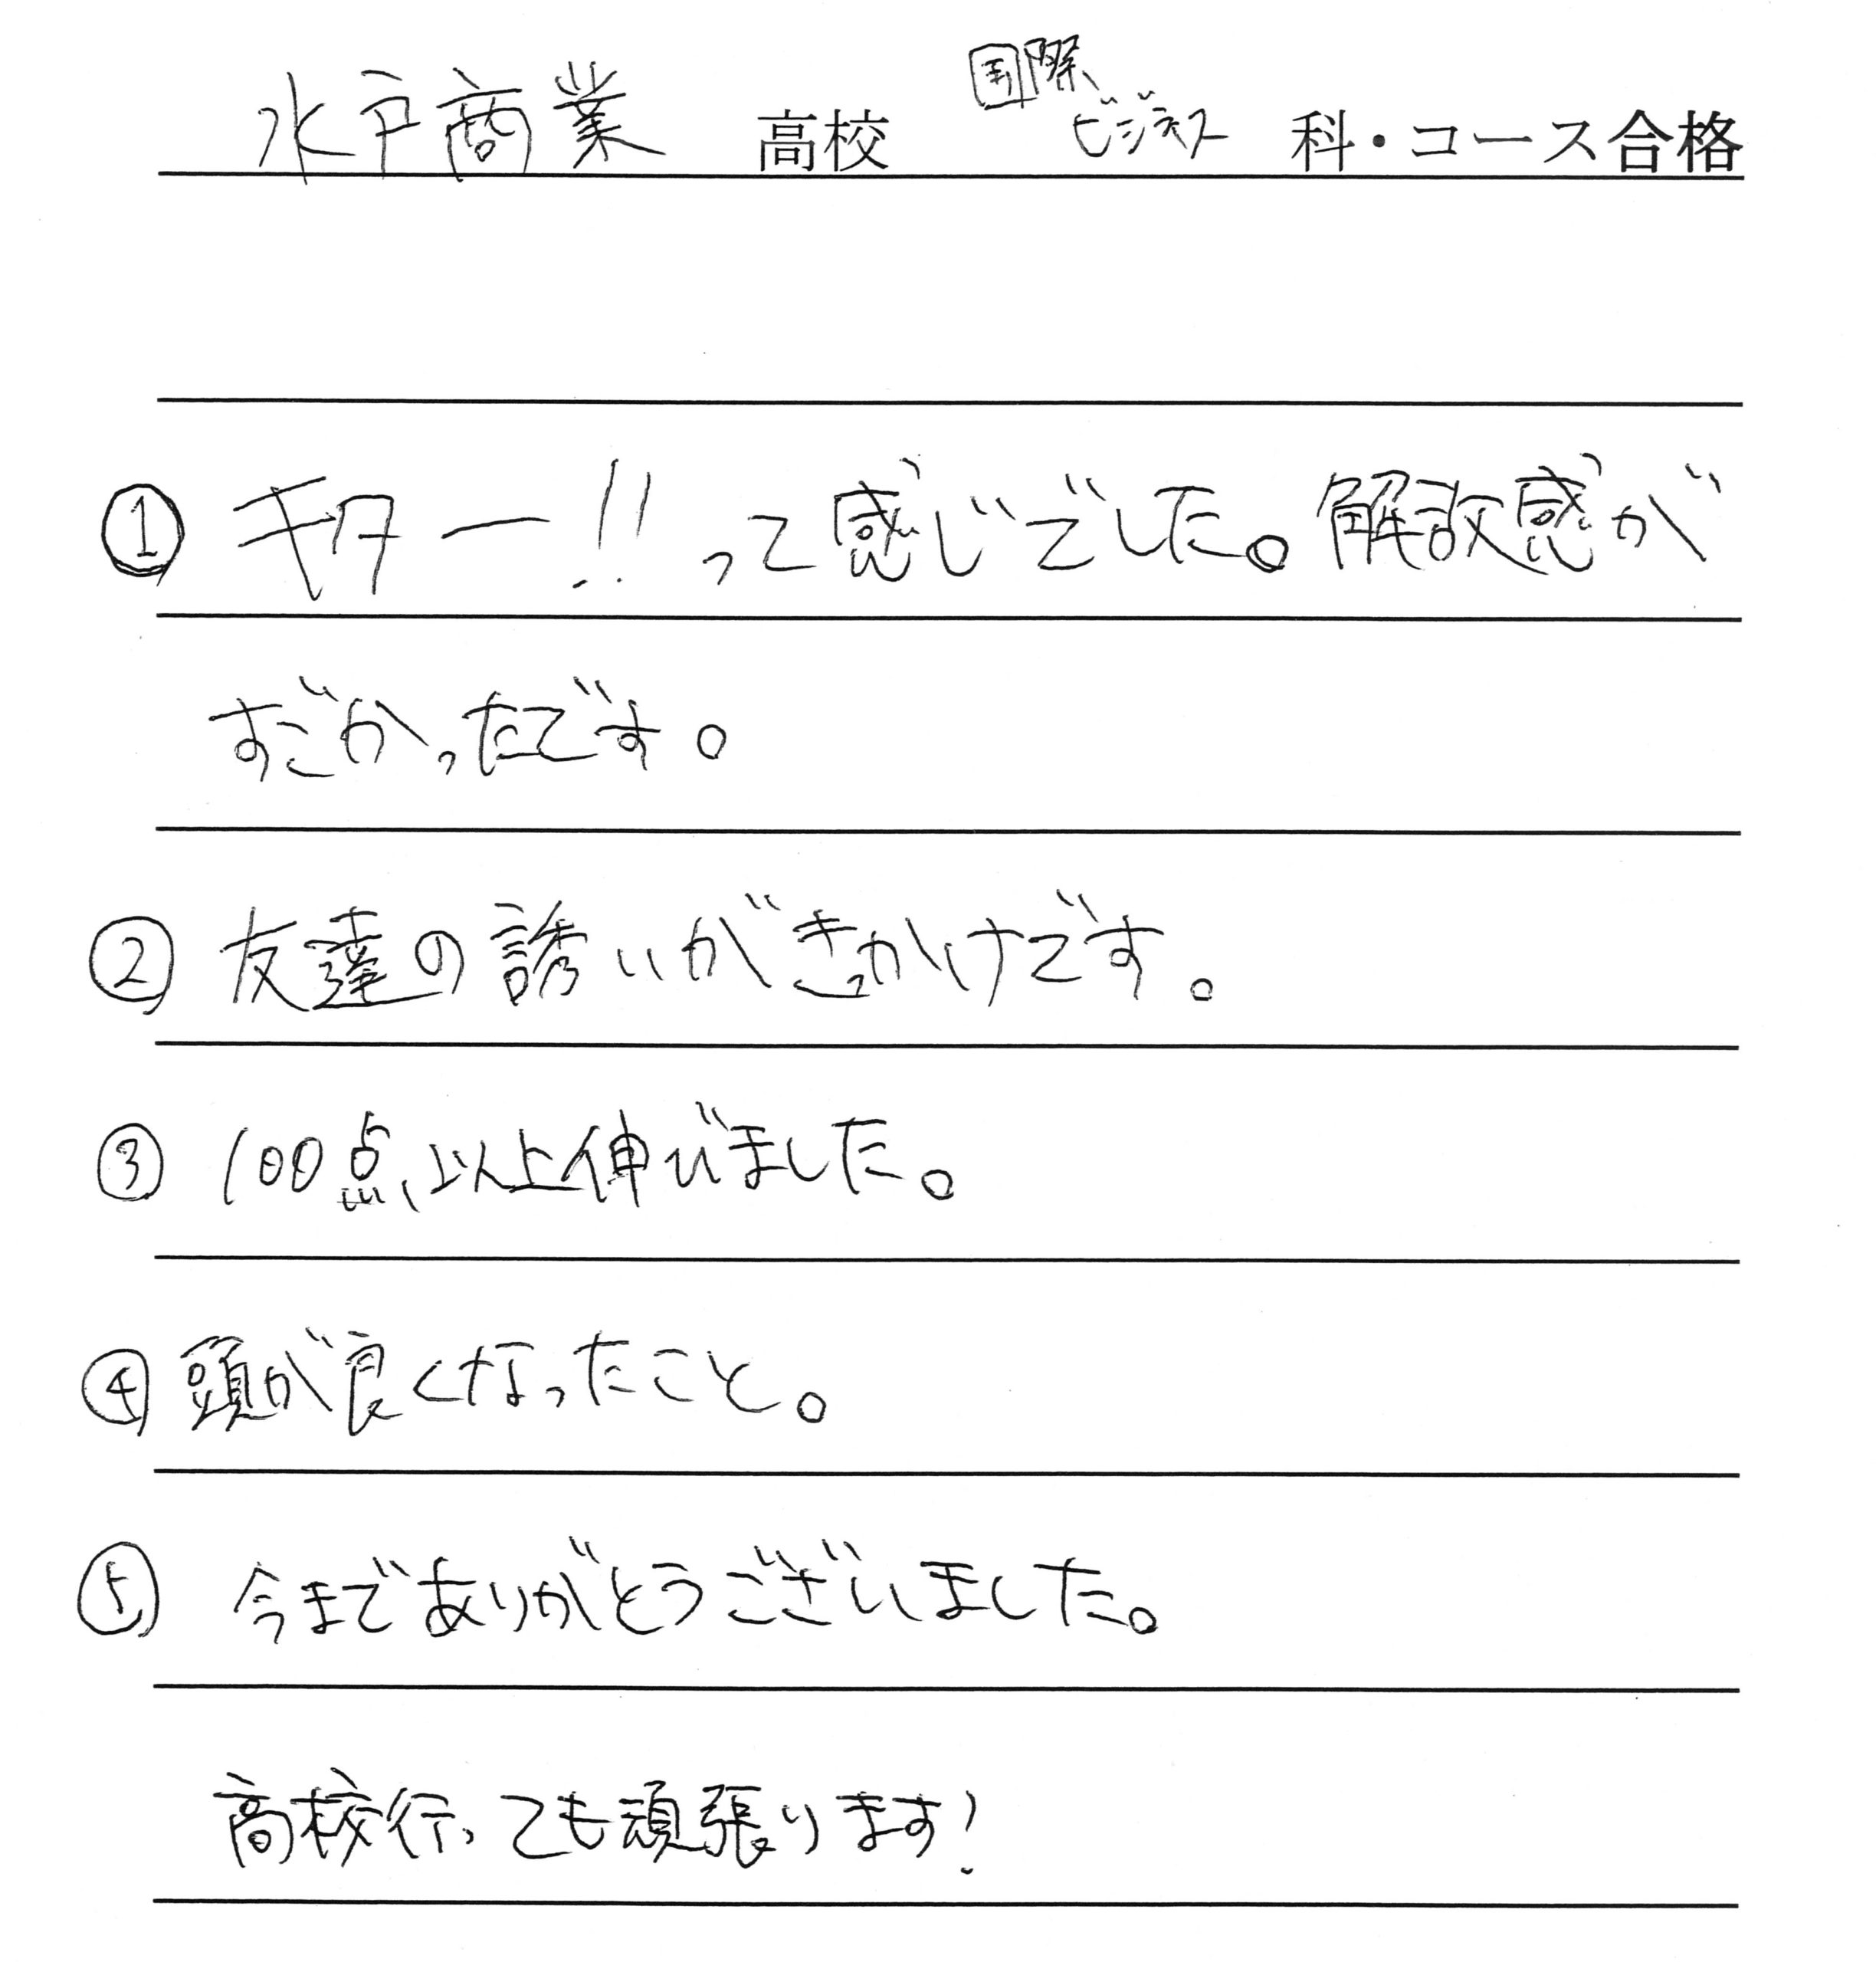 水戸商業 高校 国際ビジネス 科・コース合格
① キター!!って感じでした。解放感が
すごかったです。
② 友達の誘いがきっかけです。
③ 100点以上伸びました。
④ 頭が良くなったこと。
⑤ 今までありがとうございました。
高校行っても頑張ります!